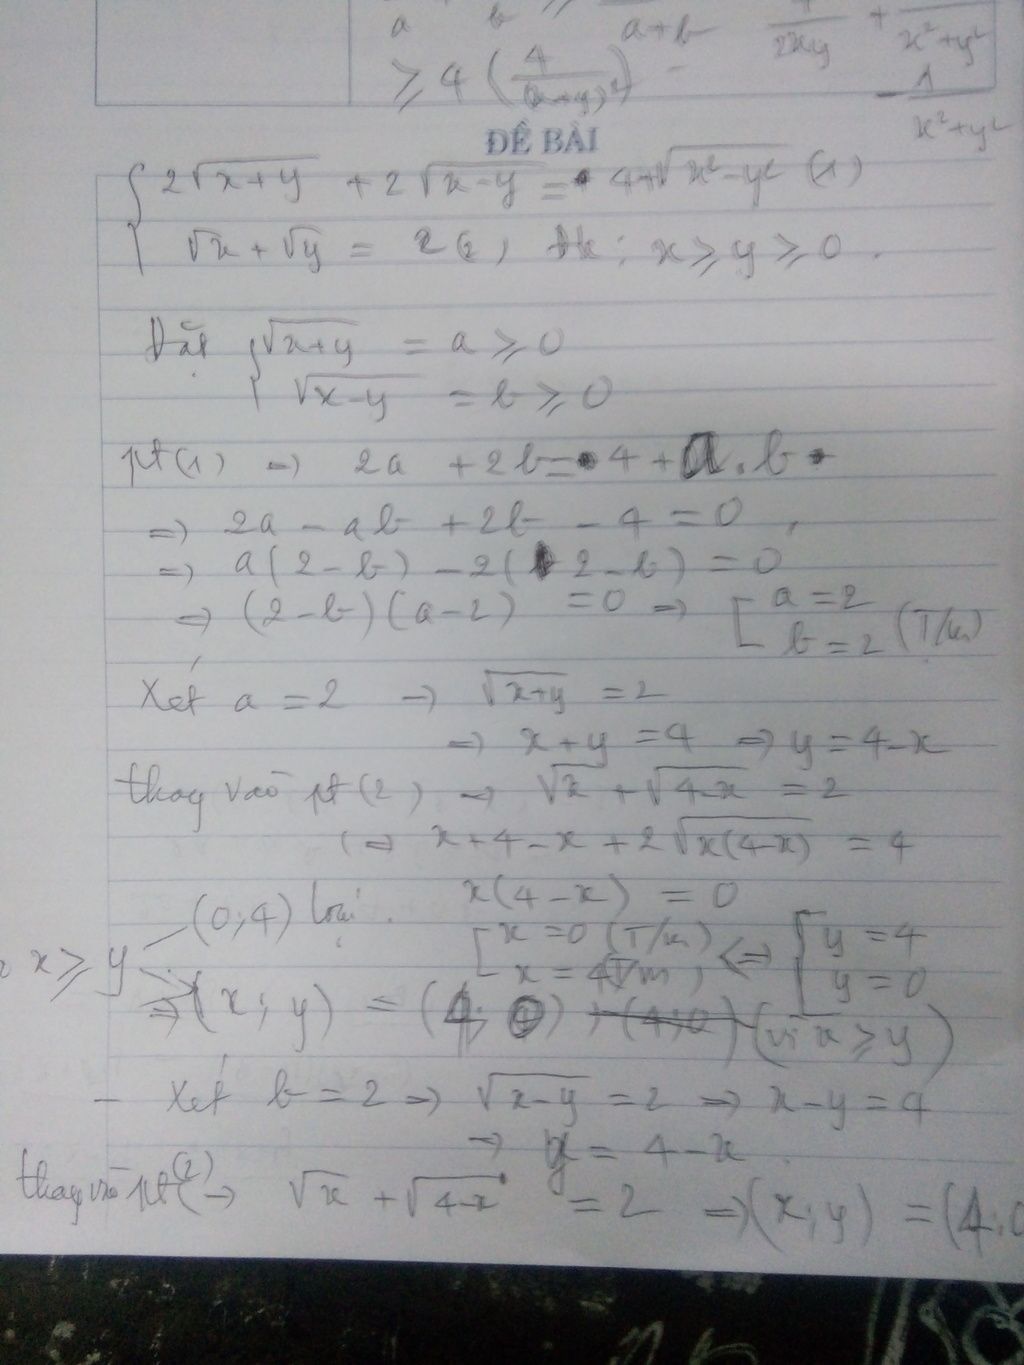 a b ≥ a+b 2xy + x²+y²
≥ 4 (4/(x+y)²) - 1/x²+y²
ĐỀ BÀI
{ 2√x+y + 2√x-y = 4+√x²-y² (1)
√x + √y = 2 (2), đk: x ≥ y ≥ 0.
Đặt { √x+y = a ≥ 0
√x-y = b ≥ 0
pt(1) => 2a + 2b = 4 + a.b
=> 2a - ab + 2b - 4 = 0
=> a(2-b) - 2(2-b) = 0
=> (2-b)(a-2) = 0 => [ a = 2
b = 2 (T/m)
Xét a = 2 -> √x+y = 2
=> x+y = 4 => y = 4-x
thay vào pt(2) -> √x + √4-x = 2
(=> x+4-x+2√x(4-x) = 4
(0;4) loại. x(4-x) = 0
[ x = 0 (T/m) <=> { y = 4
x ≥ y x = 4 T/m) y = 0
=> (x;y) = (4;0), (4;0) (vì x ≥ y)
- Xét b = 2 => √x-y = 2 => x-y = 4
-> y = 4-x.
thay vào pt(2) -> √x + √4-x = 2 => (x;y) = (4;0